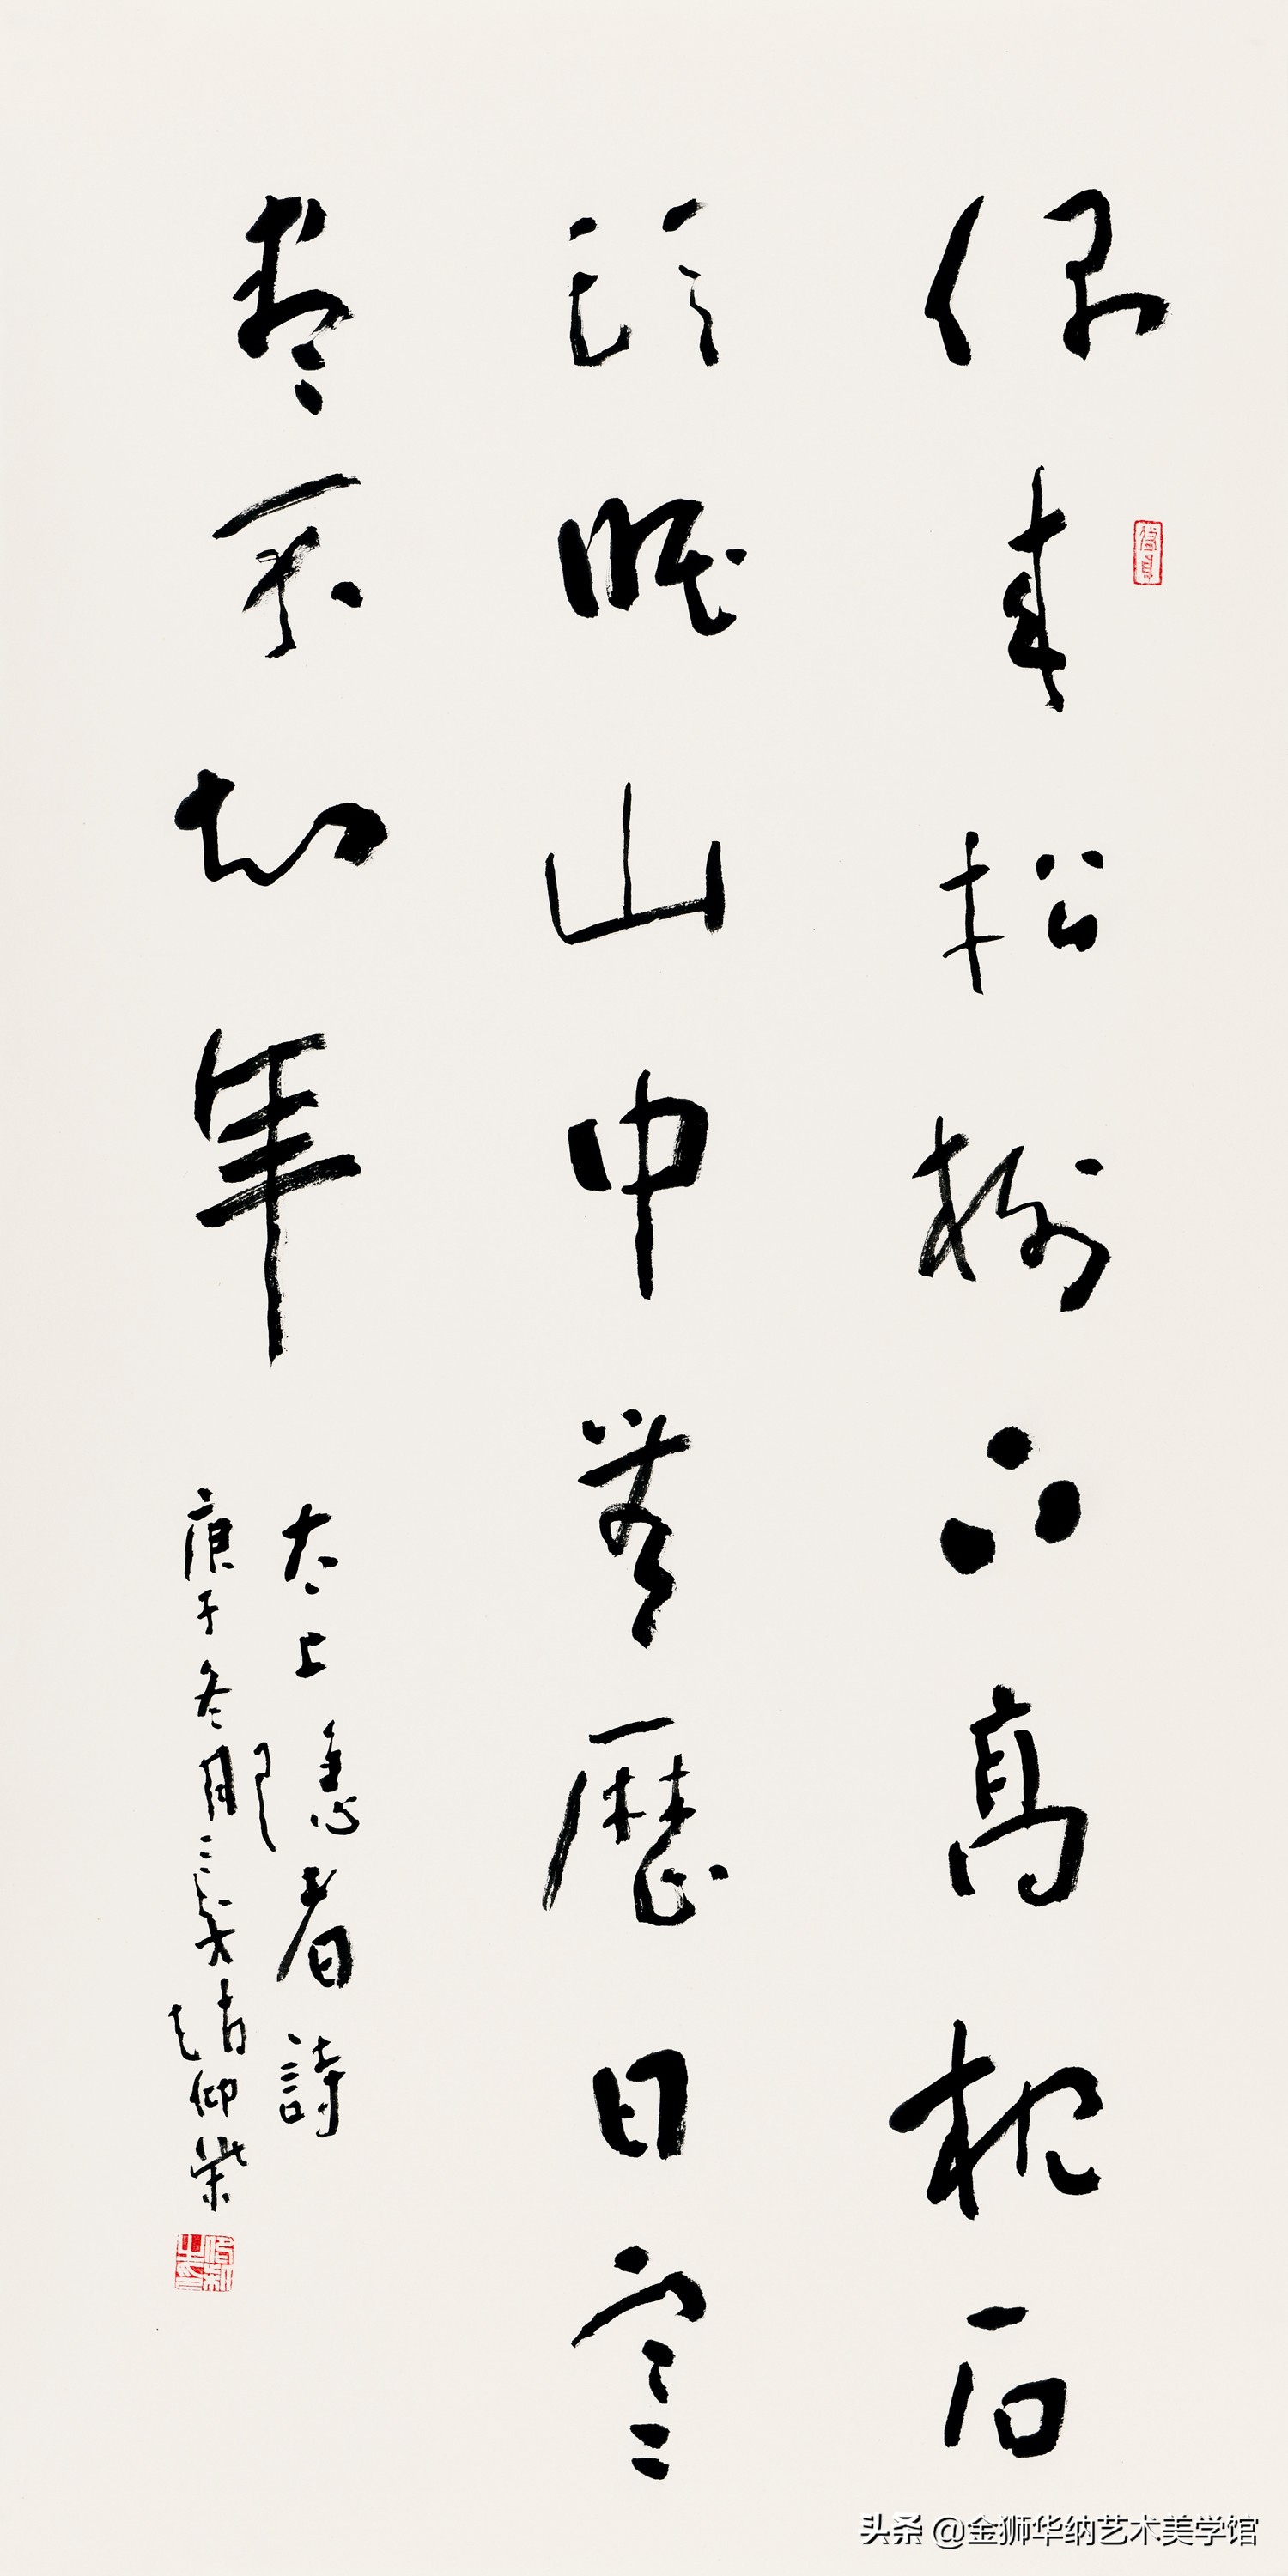 偶来松樹下高枕石
頭眠山中無歷日寒
盡不知年
太上隱者詩
庚子冬月趙仰
头条 @金狮华纳艺术美学馆